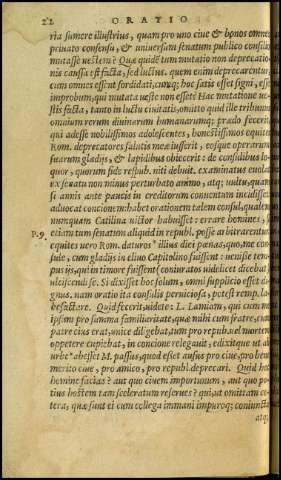 22 ORATIO
ria sumere illustrius, quam pro uno ciue & bonos omneis
priuato consensu, & uniuersum senatum publico consilio
mutasse uestem? Quae quidem tum mutatio non deprecatio-
nis caussa est facta, sed luctus. quem enim deprecarentur,
cum omnes essent sordidati, cumq; hoc satis esset signi, esse
improbum, qui mutata ueste non esset? Hac mutatione ue-
stis facta, tanto in luctu ciuitatis, omitto quid ille tribunus
omnium rerum diuinarum humanarumq; praedo fecerit,
qui adesse nobilissimos adolescentes, honestissimos equites
Rom. deprecatores salutis meae iusserit, eosque operarum
suarum gladijs, & lapidibus obiecerit: de consulibus lo-
quor, quorum fide resp ub. niti debuit. exanimatus euolat
ex senatu non minus perturbato animo, atq; uultu, quam
si annis ante paucis in creditorum conuentum incidisset.
aduocat concionem. habet orationem talem consul, qualem
nunquam Catilina uictor habuisset: errare homines, si
P. 9. etiam tum senatum aliquid in repub. posse arbitrarentur.
equites uero Rom. daturos illius diei poenas, quo, me con-
sule, cum gladijs in cliuo Capitolino fuissent: uenisse tem-
pus ijs, qui in timore fuissent (coniuratos uidelicet dicebat)
ulciscendi se. Si dixisset hoc solum, omni supplicio esset di-
gnus. nam oratio ista consulis perniciosa, potest remp. la-
befactare. Quid fecerit, uidete: L. Lamiam, qui cum me
ipsum pro summa familiaritate, quae mihi cum fratre, cum
patre eius erat, unice diligebat, tum pro repub. uel mortem
oppetere cupiebat, in concione relegauit, edixitque ut ab
urbe abesset M. passus, quod esset ausus pro ciue, pro bene
merito ciue, pro amico, pro repub. deprecari. Quid hoc
homine facias? aut quo ciuem importunum, aut quo po-
tius hostem tam sceleratum reserues? qui, ut omittam ce-
tera, quae sunt ei cum collega immani impuroq; coniuncta
atq;